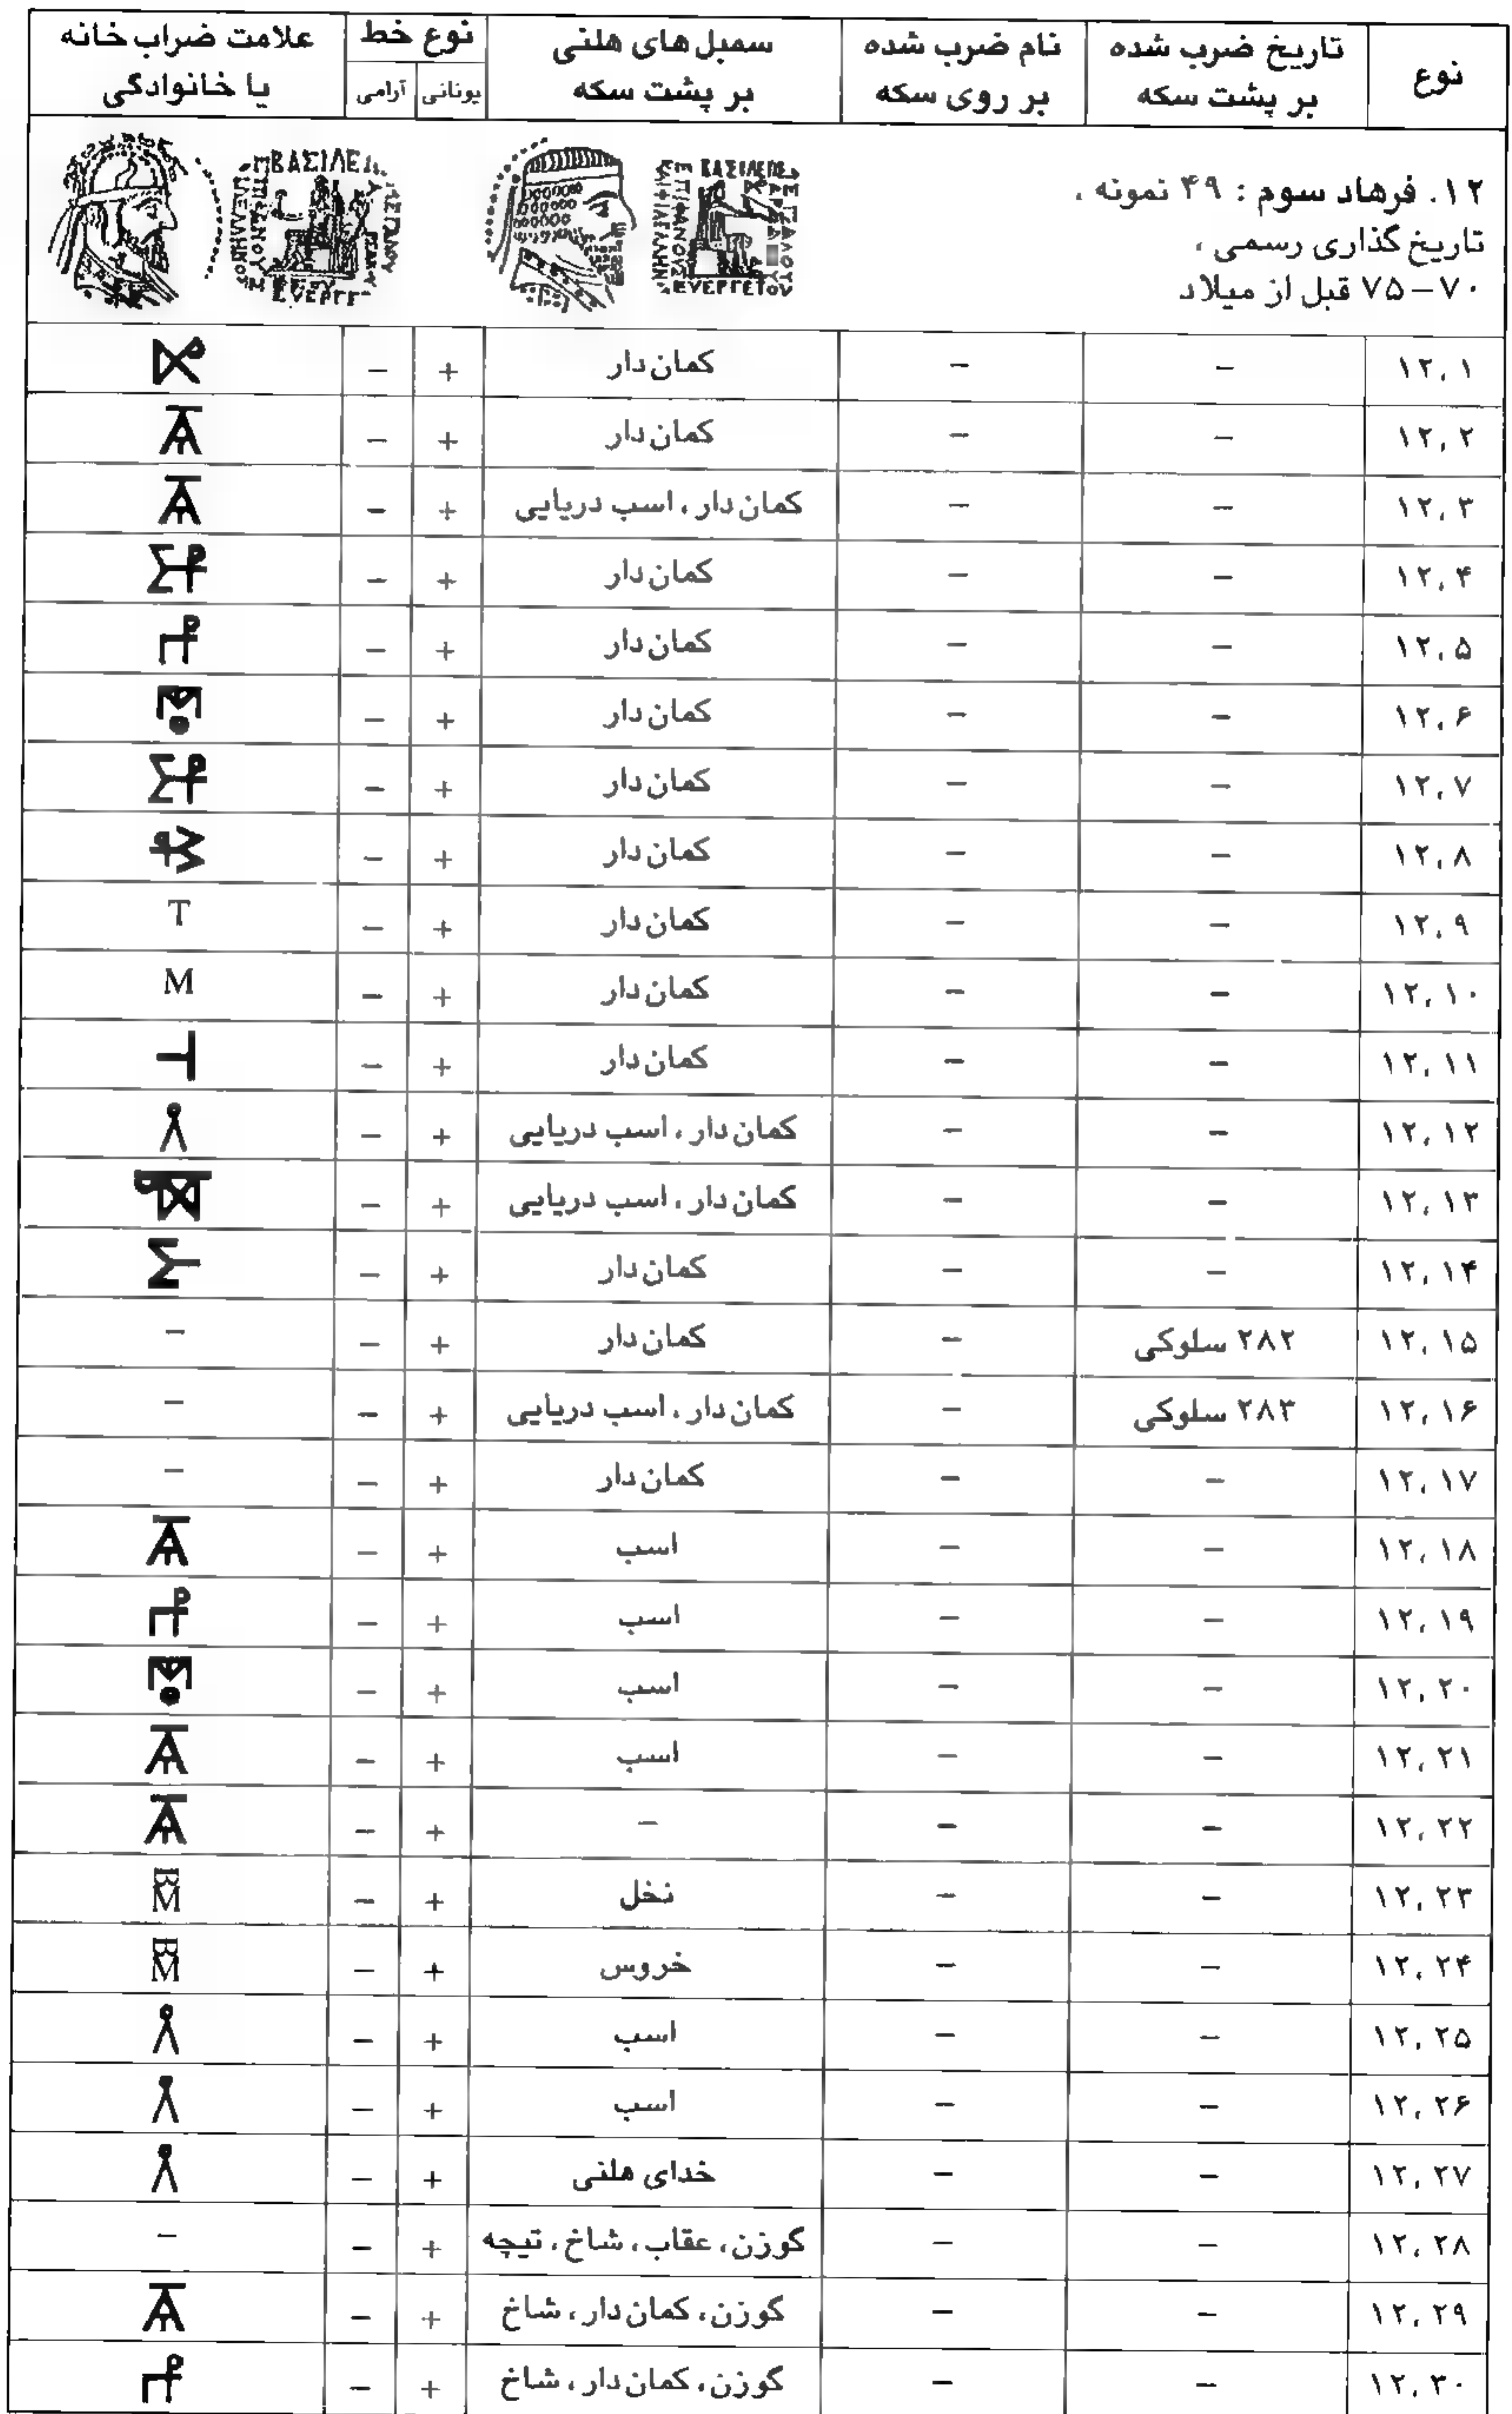 نوع | تاریخ ضرب شده بر پشت سکه | نام ضرب شده بر روی سکه | سمبل های هلنی بر پشت سکه | نوع خط یونانی | آرامی | علامت ضراب خانه یا خانوادگی
۱۲. فرهاد سوم : ۴۹ نمونه ،
تاریخ گذاری رسمی ،
۷۰–۷۵ قبل از میلاد
۱۲،۱ | – | – | کمان‌دار | + | –
۱۲،۲ | – | – | کمان‌دار | + | –
۱۲،۳ | – | – | کمان‌دار ، اسب دریایی | + | –
۱۲،۴ | – | – | کمان‌دار | + | –
۱۲،۵ | – | – | کمان‌دار | + | –
۱۲،۶ | – | – | کمان‌دار | + | –
۱۲،۷ | – | – | کمان‌دار | + | –
۱۲،۸ | – | – | کمان‌دار | + | –
۱۲،۹ | – | – | کمان‌دار | + | – | T
۱۲،۱۰ | – | – | کمان‌دار | + | – | M
۱۲،۱۱ | – | – | کمان‌دار | + | –
۱۲،۱۲ | – | – | کمان‌دار ، اسب دریایی | + | –
۱۲،۱۳ | – | – | کمان‌دار ، اسب دریایی | + | –
۱۲،۱۴ | – | – | کمان‌دار | + | –
۱۲،۱۵ | ۲۸۲ سلوکی | – | کمان‌دار | + | – | –
۱۲،۱۶ | ۲۸۳ سلوکی | – | کمان‌دار ، اسب دریایی | + | – | –
۱۲،۱۷ | – | – | کمان‌دار | + | – | –
۱۲،۱۸ | – | – | اسب | + | –
۱۲،۱۹ | – | – | اسب | + | –
۱۲،۲۰ | – | – | اسب | + | –
۱۲،۲۱ | – | – | اسب | + | –
۱۲،۲۲ | – | – | – | + | –
۱۲،۲۳ | – | – | نخل | + | –
۱۲،۲۴ | – | – | خروس | + | –
۱۲،۲۵ | – | – | اسب | + | –
۱۲،۲۶ | – | – | اسب | + | –
۱۲،۲۷ | – | – | خدای هلنی | + | –
۱۲،۲۸ | – | – | گوزن، عقاب، شاخ، تیچه | + | – | –
۱۲،۲۹ | – | – | گوزن، کمان‌دار ، شاخ | + | –
۱۲،۳۰ | – | – | گوزن، کمان‌دار ، شاخ | + | –